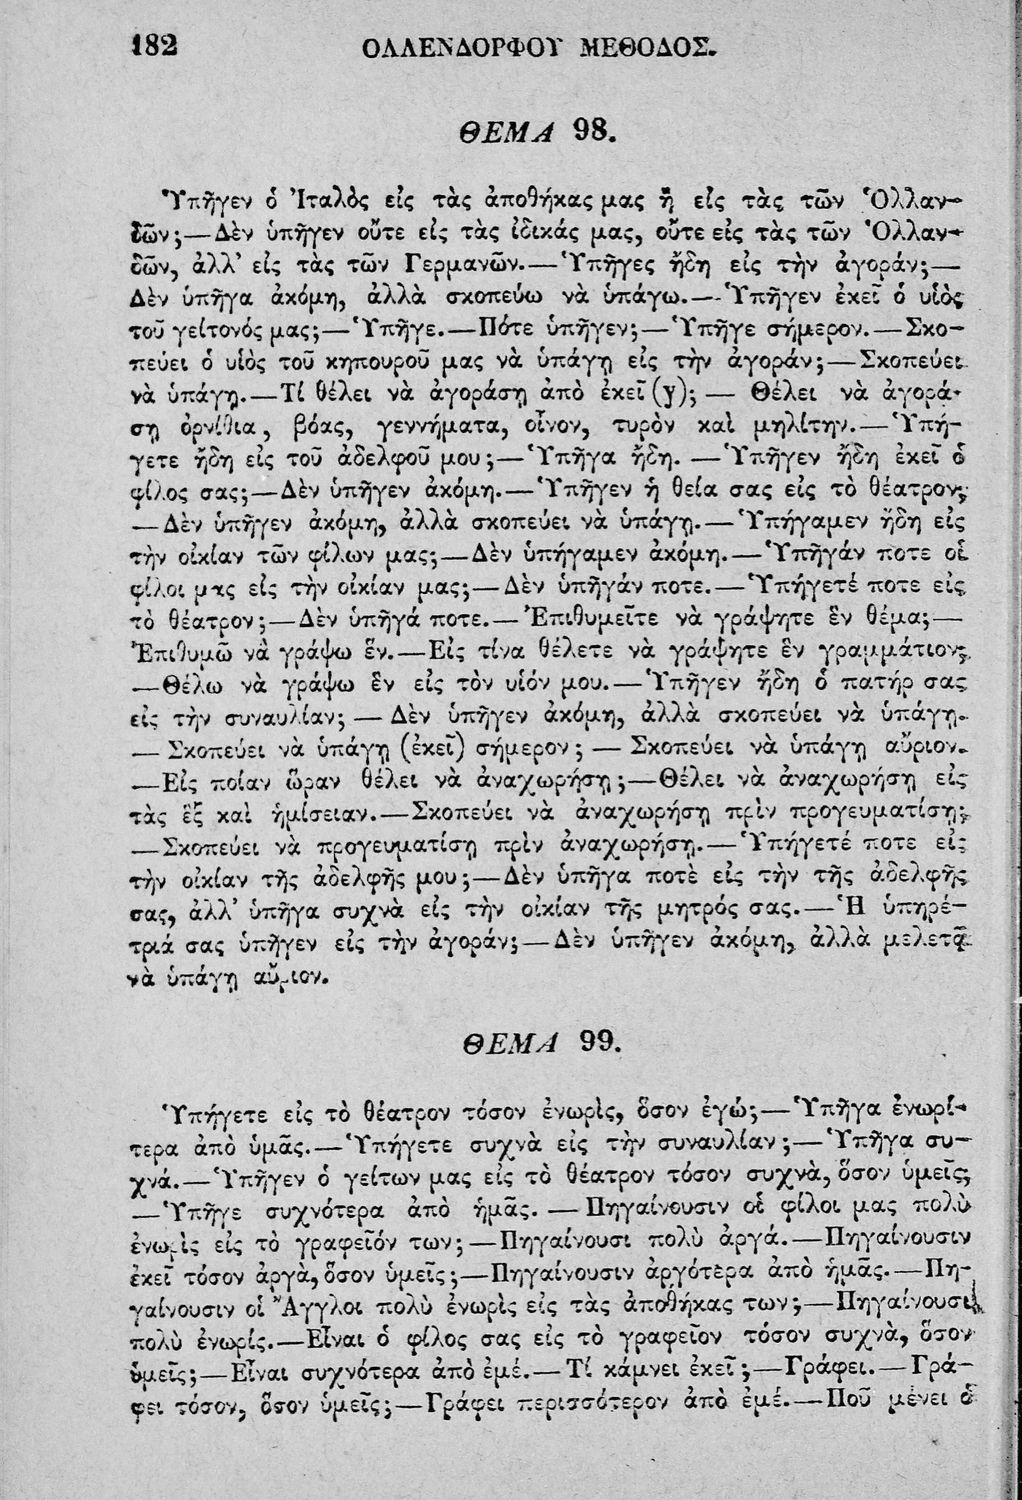 182 ΟΛΛΕΝΔΟΡΦΟΥ ΜΕΘΟΔΟΣ.
ΘΕΜΑ 98.
Ὑπῆγεν ὁ Ἰταλὸς εἰς τὰς ἀποθήκας μας ἢ εἰς τὰς τῶν Ὁλλαν-
δῶν;—Δὲν ὑπῆγεν οὔτε εἰς τὰς ἰδικάς μας, οὔτε εἰς τὰς τῶν Ὁλλαν-
δῶν, ἀλλ’ εἰς τὰς τῶν Γερμανῶν.—Ὑπῆγες ἤδη εἰς τὴν ἀγοράν;—
Δὲν ὑπῆγα ἀκόμη, ἀλλὰ σκοπεύω νὰ ὑπάγω.—Ὑπῆγεν ἐκεῖ ὁ υἱὸς
τοῦ γείτονός μας;—Ὑπῆγε.—Πότε ὑπῆγεν;—Ὑπῆγε σήμερον.—Σκο-
πεύει ὁ υἱὸς τοῦ κηπουροῦ μας νὰ ὑπάγῃ εἰς τὴν ἀγοράν;—Σκοπεύει
νὰ ὑπάγῃ.—Τί θέλει νὰ ἀγοράσῃ ἀπὸ ἐκεῖ (y);— Θέλει νὰ ἀγορά-
σῃ ὀρνίθια, βόας, γεννήματα, οἶνον, τυρὸν καὶ μηλίτην.—Ὑπή-
γετε ἤδη εἰς τοῦ ἀδελφοῦ μου;—Ὑπῆγα ἤδη.—Ὑπῆγεν ἤδη ἐκεῖ ὁ
φίλος σας;—Δὲν ὑπῆγεν ἀκόμη.—Ὑπῆγεν ἡ θεία σας εἰς τὸ θέατρον;
—Δὲν ὑπῆγεν ἀκόμη, ἀλλὰ σκοπεύει νὰ ὑπάγῃ.—Ὑπήγαμεν ἤδη εἰς
τὴν οἰκίαν τῶν φίλων μας;—Δὲν ὑπήγαμεν ἀκόμη.—Ὑπῆγάν ποτε οἱ
φίλοι μας εἰς τὴν οἰκίαν μας;—Δὲν ὑπῆγάν ποτε.—Ὑπήγετέ ποτε εἰς
τὸ θέατρον;—Δὲν ὑπῆγά ποτε.—Ἐπιθυμεῖτε νὰ γράψητε ἓν θέμα;—
Ἐπιθυμῶ νὰ γράψω ἕν.—Εἰς τίνα θέλετε νὰ γράψητε ἓν γραμμάτιον;
—Θέλω νὰ γράψω ἓν εἰς τὸν υἱόν μου.—Ὑπῆγεν ἤδη ὁ πατήρ σας
εἰς τὴν συναυλίαν;—Δὲν ὑπῆγεν ἀκόμη, ἀλλὰ σκοπεύει νὰ ὑπάγῃ.
—Σκοπεύει νὰ ὑπάγῃ (ἐκεῖ) σήμερον;—Σκοπεύει νὰ ὑπάγῃ αὔριον.
—Εἰς ποίαν ὥραν θέλει νὰ ἀναχωρήσῃ;—Θέλει νὰ ἀναχωρήσῃ εἰς
τὰς ἓξ καὶ ἡμίσειαν.—Σκοπεύει νὰ ἀναχωρήσῃ πρὶν προγευματίσῃ;
—Σκοπεύει νὰ προγευματίσῃ πρὶν ἀναχωρήσῃ.—Ὑπήγετέ ποτε εἰς
τὴν οἰκίαν τῆς ἀδελφῆς μου;—Δὲν ὑπῆγα ποτὲ εἰς τὴν τῆς ἀδελφῆς
σας, ἀλλ’ ὑπῆγα συχνὰ εἰς τὴν οἰκίαν τῆς μητρός σας.—Ἡ ὑπηρέ-
τριά σας ὑπῆγεν εἰς τὴν ἀγοράν;—Δὲν ὑπῆγεν ἀκόμη, ἀλλὰ μελετᾷ
νὰ ὑπάγῃ αὔριον.
ΘΕΜΑ 99.
Ὑπήγετε εἰς τὸ θέατρον τόσον ἐνωρὶς, ὅσον ἐγώ;—Ὑπῆγα ἐνωρί-
τερα ἀπὸ ὑμᾶς.—Ὑπήγετε συχνὰ εἰς τὴν συναυλίαν;—Ὑπῆγα συ-
χνά.—Ὑπῆγεν ὁ γείτων μας εἰς τὸ θέατρον τόσον συχνὰ, ὅσον ὑμεῖς;
—Ὑπῆγε συχνότερα ἀπὸ ἡμᾶς.—Πηγαίνουσιν οἱ φίλοι μας πολὺ
ἐνωρὶς εἰς τὸ γραφεῖόν των;—Πηγαίνουσι πολὺ ἀργά.—Πηγαίνουσιν
ἐκεῖ τόσον ἀργὰ, ὅσον ὑμεῖς;—Πηγαίνουσιν ἀργότερα ἀπὸ ἡμᾶς.—Πη-
γαίνουσιν οἱ Ἄγγλοι πολὺ ἐνωρὶς εἰς τὰς ἀποθήκας των;—Πηγαίνουσι
πολὺ ἐνωρίς.—Εἶναι ὁ φίλος σας εἰς τὸ γραφεῖον τόσον συχνὰ, ὅσον
ὑμεῖς;—Εἶναι συχνότερα ἀπὸ ἐμέ.—Τί κάμνει ἐκεῖ;—Γράφει.—Γρά-
φει τόσον, ὅσον ὑμεῖς;—Γράφει περισσότερον ἀπὸ ἐμέ.—Ποῦ μένει ὁ